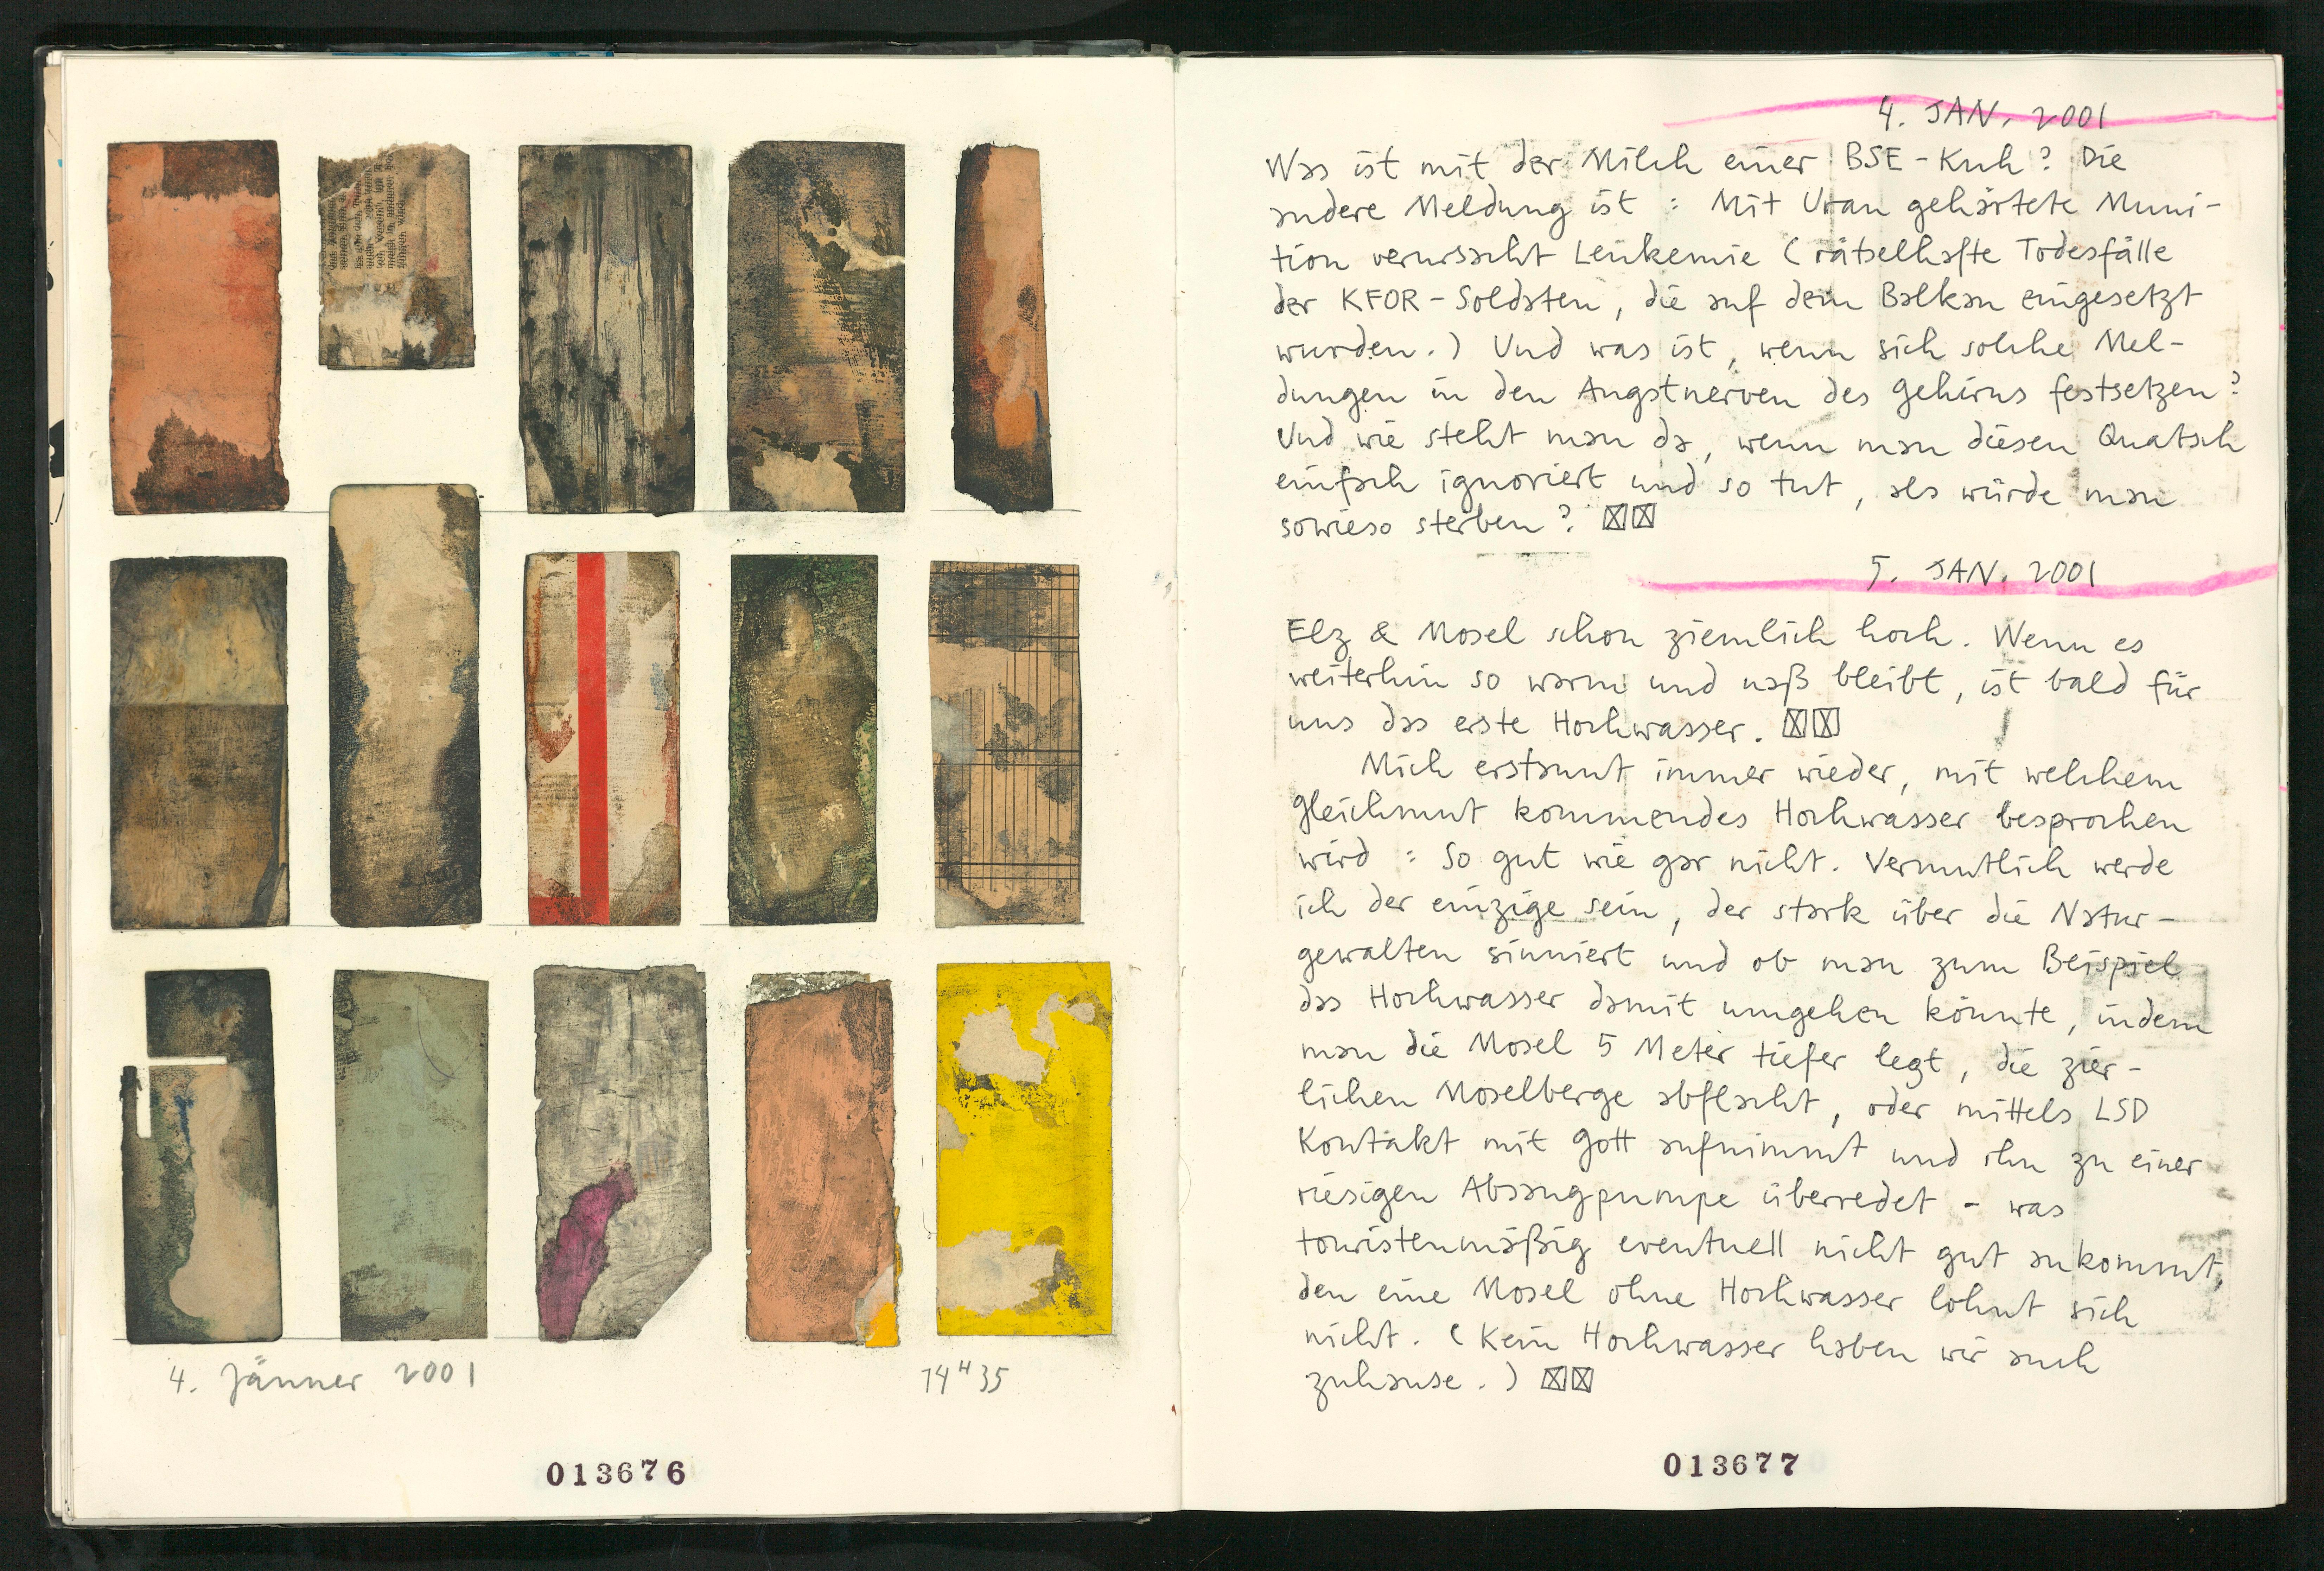 4. Jänner 2001
14H35
013676
4. JAN. 2001
Was ist mit der Milch einer BSE-Kuh? Die
andere Meldung ist: Mit Uran gehärtete Muni-
tion verursacht Leukemie (rätselhafte Todesfälle
der KFOR-Soldaten, die auf dem Balkan eingesetzt
wurden.) Und was ist, wenn sich solche Mel-
dungen in den Angstnerven des Gehirns festsetzen?
Und wie steht man da, wenn man diesen Quatsch
einfach ignoriert und so tut, als würde man
sowieso sterben?
5. JAN. 2001
Elz & Mosel schon ziemlich hoch. Wenn es
weiterhin so warm und naß bleibt, ist bald für
uns das erste Hochwasser.
Mich erstaunt immer wieder, mit welchem
Gleichmut kommendes Hochwasser besprochen
wird: So gut wie gar nicht. Vermutlich werde
ich der einzige sein, der stark über die Natur-
gewalten sinniert und ob man zum Beispiel
das Hochwasser damit umgehen könnte, indem
man die Mosel 5 Meter tiefer legt, die zier-
lichen Moselberge abflacht, oder mittels LSD
Kontakt mit Gott aufnimmt und ihn zu einer
riesigen Absaugpumpe überredet - was
touristenmäßig eventuell nicht gut ankommt,
den eine Mosel ohne Hochwasser lohnt sich
nicht. (Kein Hochwasser haben wir auch
zuhause.)
013677